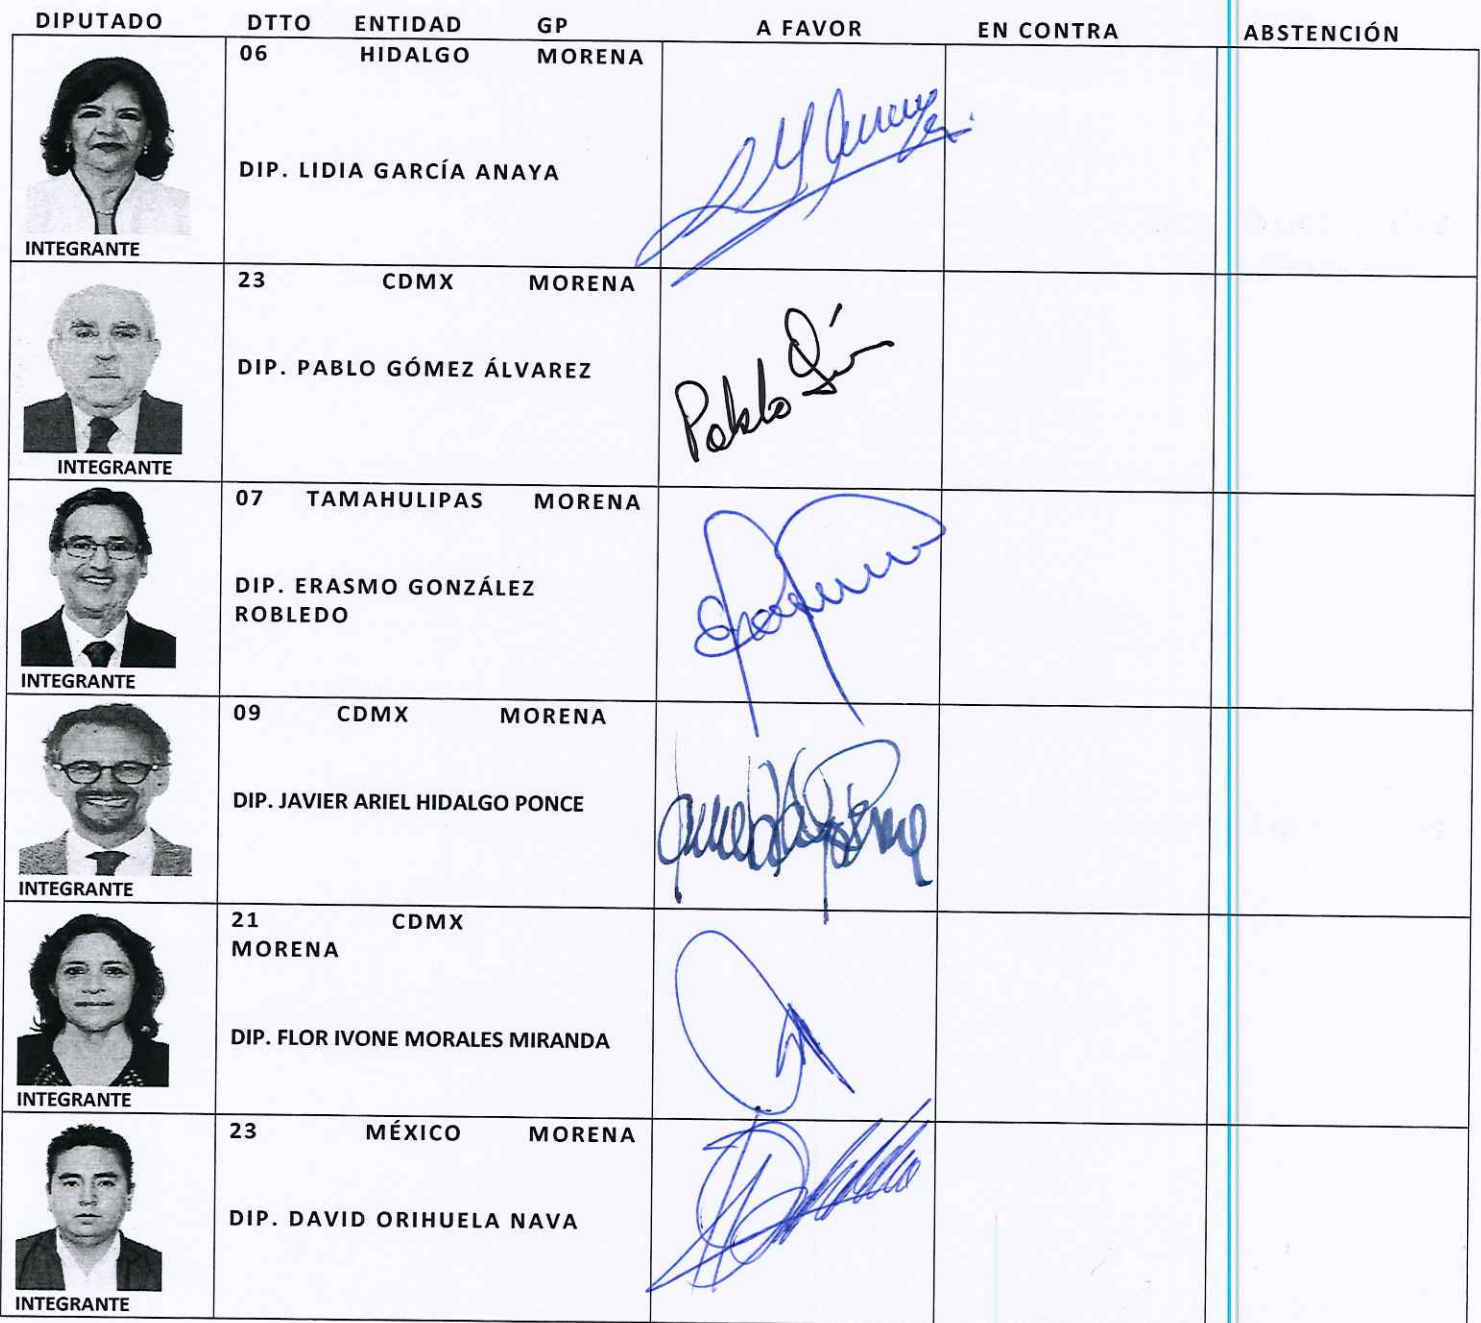 DIPUTADO DTTO ENTIDAD GP A FAVOR EN CONTRA ABSTENCIÓN
06 HIDALGO MORENA
DIP. LIDIA GARCÍA ANAYA
INTEGRANTE
23 CDMX MORENA
DIP. PABLO GÓMEZ ÁLVAREZ
Pablo
INTEGRANTE
07 TAMAHULIPAS MORENA
DIP. ERASMO GONZÁLEZ
ROBLEDO
INTEGRANTE
09 CDMX MORENA
DIP. JAVIER ARIEL HIDALGO PONCE
INTEGRANTE
21 CDMX
MORENA
DIP. FLOR IVONE MORALES MIRANDA
INTEGRANTE
23 MÉXICO MORENA
DIP. DAVID ORIHUELA NAVA
INTEGRANTE